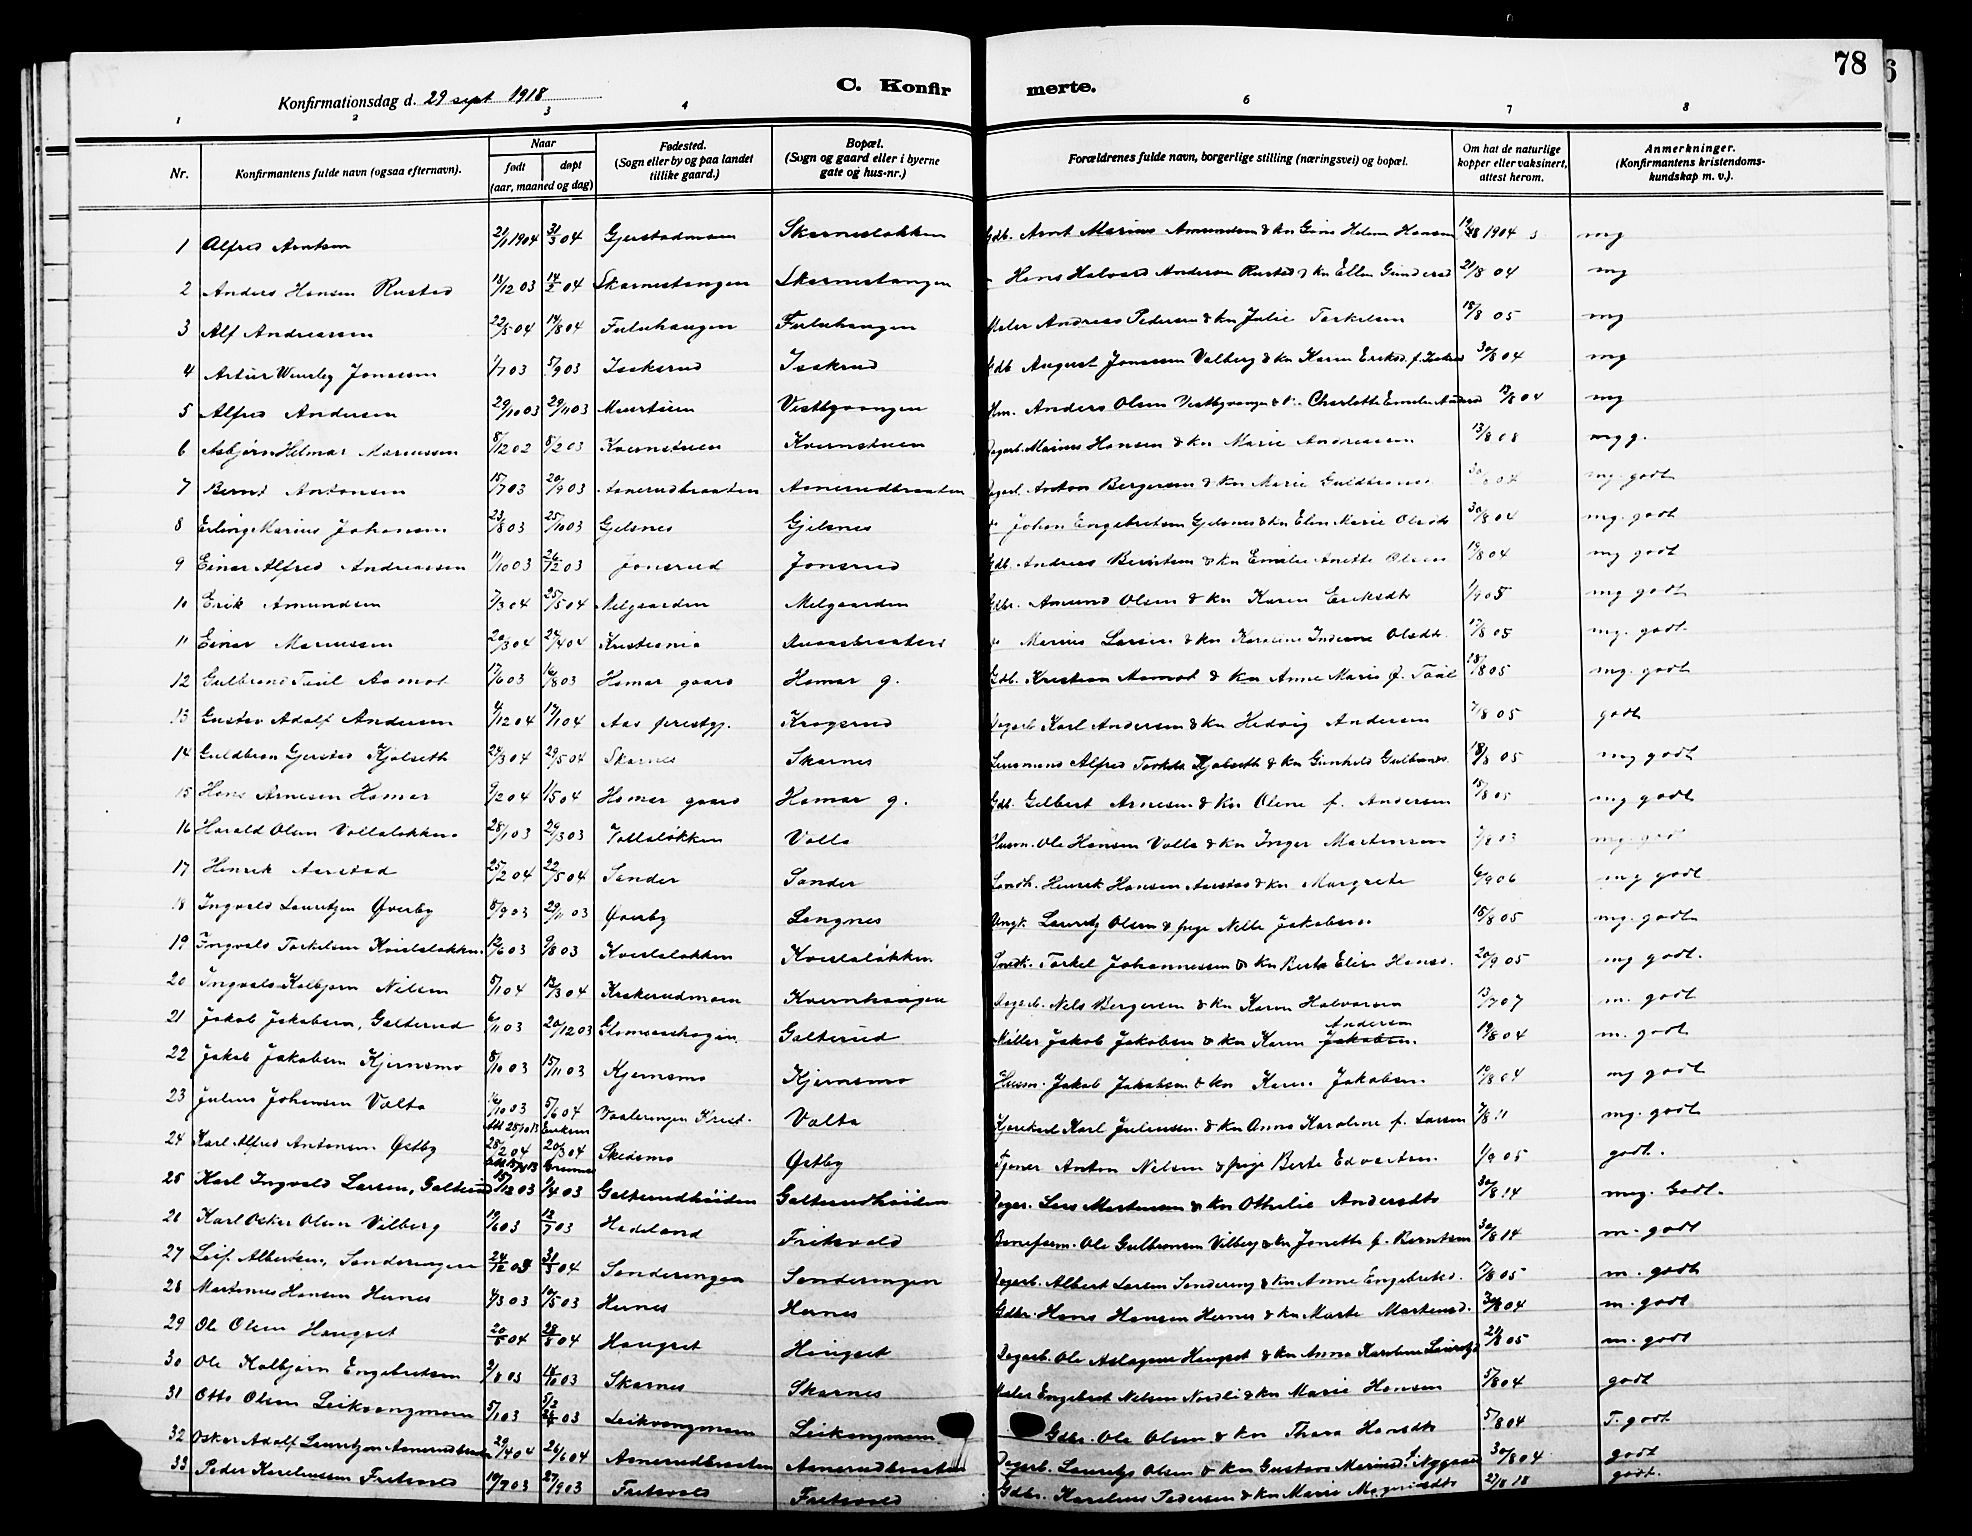 78
6
Konfirmationsdag d. 29 sept 1918
C. Konfir merte.
1 2 3 4 6 7 8
Nr. Konfirmantens fulde navn (ogsaa efternavn). Naar født døpt (aar, maaned og dag) Fødested. (Sogn eller by og paa landet tillike gaard.) Bopæl. (Sogn og gaard eller i byerne gate og hus-nr.) Forældrenes fulde navn, borgerlige stilling (næringsvei) og bopæl. Om hat de naturlige kopper eller vaksinert, attest herom. Anmerkninger. (Konfirmantens kristendoms-kundskap m. v.).
1 Alfred Arntsen 21/1 1904 31/3 04 Gjerstadmoen Skarnesløkken Gdb. Arnt Marius Amundsen & kn Gina Helene Hansen 1904 mg
2 Anders Hansen Rustad 18/12 03 14/2 04 Skarnestangen Skarnestangen Hans Halvard Andersen Rustad & kn Ellen Gundersd 21/8 04 mg
3 Alf Andreassen 22/5 04 14/8 04 Fuluhaugen Fuluhaugen Maler Andreas Pedersen & kn Julie Torkelsen 18/8 05 mg
4 Artur Jonassen 1/7 03 5/9 03 Isakerud Isakrud Gdb August Jonassen Valberg & kn Karen Eriksd. 30/8 04 mg
5 Alfred Andersen 29/10 03 29/11 03 Vestbyvangen Hm. Anders Olsen Vestbyvangen Charlotte Emelie 04 mg
6 Asbjørn Helmar Mariussen 8/12 02 8/2 03 Kvernstuen Kvernstuen Dagarb. Marius Hansen & kn Marie Andreassen 13/8 08 mgg.
7 Bernt Antonsen 15/7 03 20/9 03 Asnerudbraaten Asnerudbraaten Dagarb. Anton Bergersen & kn Marie Guldbrands 04 mg. godt
8 Erling Marius Johansen 23/8 03 25/10 03 Gjelsnes Gjelsnes Johan Engebretsen Gjelsnes & kn Elen Marie Olsdt 30/8 04 mg. godt
9 Einar Alfred Andreassen 11/10 03 26/12 03 Jonsrud Jonsrud Gdb. Andreas Berntsen & kn Emilie Anette Olsen 19/8 04 mg godt
10 Erik Amundsen 7/3 04 25/5 04 Melgaarden Melgaarden Gdbr. Amund Olsen & kn Karen Eriksdt 1/9 05 mg godt
11 Einar Mariussen 20/3 04 24/4 04 Kristiania Marius Larsen & kn Karoline Olsdt. 17/8 05 mg. godt.
12 Gulbrand Taiel Aamot 17/6 03 16/8 03 Homar gaard Homar g. Gdb. Kristian Aamot & kn Anne Marie f. Taiel 18/8 05 mg. godt
13 Gustav Adolf Andersen 4/12 04 17/1 04 Aas prestgj. Krogsrud Dagarb Karl Andersen & kn Hedvig Andersen 7/8 05 godt
14 Guldbran Gjerstad Kjølseth 24/3 04 29/5 04 Skarnes Skarnes Lensmand Alfred Kjølseth & kn Gunhild Gulbrands. 18/8 05 mg godt
15 Hans Arnesen Homar 9/2 04 1/5 04 Homar gaard Homar g. Gdb. Gilbert Arnesen & kn Olene f. Andersen 18/8 05 mg godt
16 Harald Olsen Vollaløkken 28/1 03 29/3 03 Vollaløkken Volla Husm. Ole Hansen Volla & kn Inger Martinsen 7/8 03 mg. godt
17 Henrik Aarstad 25/2 04 22/5 04 Sander Sander Landh. Henrik Hansen Aarstad & kn Margrete 6/9 06 mg godt
18 Ingvald Lauritzen Øverby 8/9 03 29/11 03 Øverby Langnes Ungk. Lauritz Olsen & pige Nelle Jakobsen. 18/8 05 mg. godt
19 Ingvald Torkelsen Kvislaløkken 12/6 03 9/8 03 Kvislaløkken Kvislaløkken Torkel Johannessen & kn Berte Elise Hansd. 20/9 05 mg godt.
20 Ingvald Kolbjørn Nilsen 5/1 04 13/3 04 Krakerudmoen Kvernhaugen Dagarb. Nels Bergersen & kn Karen Halvorsen 13/7 07 m. godt
21 Jakob Jakobsen, Galterud 6/11 03 20/12 03 Glomsaskogen Galterud Møller Jakob Jakobsen & kn Karen Jakobsen. Andersen 19/8 04 m. godt
22 Jakob Jakobsen Kjernsmo 8/10 03 15/11 03 Kjernsmo Kjernsmo Husm. Jakob Jakobsen & kn Karen Jakobsen. 19/8 04 mg godt
23 Julius Johansen Valta 16/10 03 5/6 04 Vaaleringen Krist. Valta Kjørekarl Karl Juliussen & kn Anna Karoline f. Larsen 7/8 11 mg. godt
24 Karl Alfred Antonsen Østby 25/2 04 20/3 04 Skedsmo Østby Tjener Anton Nilsen & pige Berte Edvartsen. 1/9 05 godt.
25 Karl Ingvald Larsen, Galterud 15/12 03 1/4 03 Galterudhøiden Galterudhøiden Dagar. Lars Martinsen & kn Othilie Andersdt 30/8 14 meg. Godt.
26 Karl Oskar Olsen Vilberg 19/6 03 12/7 03 Hadeland Fritsvold Baneform. Ole Gulbransen Vilberg & kn Jonette f. Berntsen 30/8 14 m. godt
27 Leif Albertsen, Sanderengen 24/12 03 31/3 04 Sanderengen Sanderengen Dagarb. Albert Larsen Sandereng & kn Anne Engebretsd. 17/8 05 m. godt
28 Martinus Hansen Hernes 4/3 03 10/5 03 Hernes Hernes Gdbr. Hans Hansen Hernes & kn Marte Martinsd. 30/8 04 m. godt
29 Ole Olsen Haugset 20/5 04 28/8 04 Haugset Haugset Dagarb. Ole Aslagsen Haugset & kn Anna Karoline 21/8 05 m. godt
30 Ole Kolbjørn Engebretsen 2/8 03 03 Skarnes Skarnes Maler Engebret Nilsen Nordli & kn Marie Hansen 5/8 04 godt
31 Otto Olsen Leikvangmoen 5/1 03 03 Leikvangmoen Leikvangmoen Gdbr. Ole Olsen & kn Thora Hansdt 5/8 04 T. godt
32 Oskar Adolf Lauritzen Asnerudbraaten 29/4 04 26/6 04 Asnerudbraaten Asnerudbraaten Dagarb. Lauritz Olsen & kn Gustava 30/8 04 godt
33 Peder Kareliussen Fritsvold 19/7 03 27/9 03 Fritsvold Fritsvold Gdbr. Karelius Pedersen & kn Marie 21/8 18 godt.